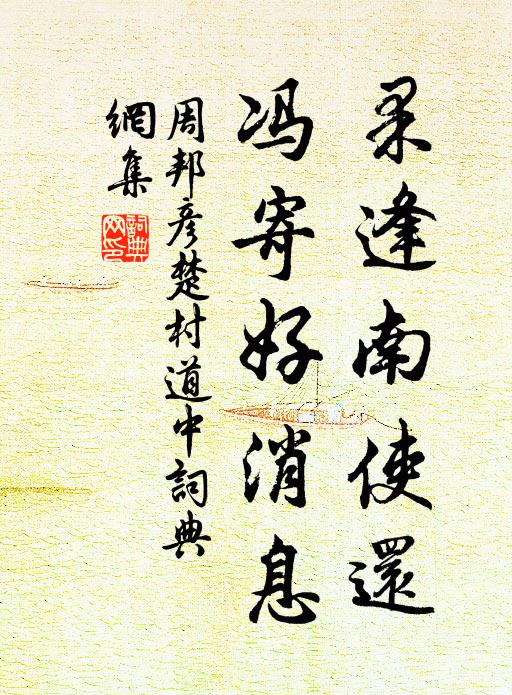 逢南使還
冯寄好消息
周邦彦楚村道中詞典
網集
詞典
网印